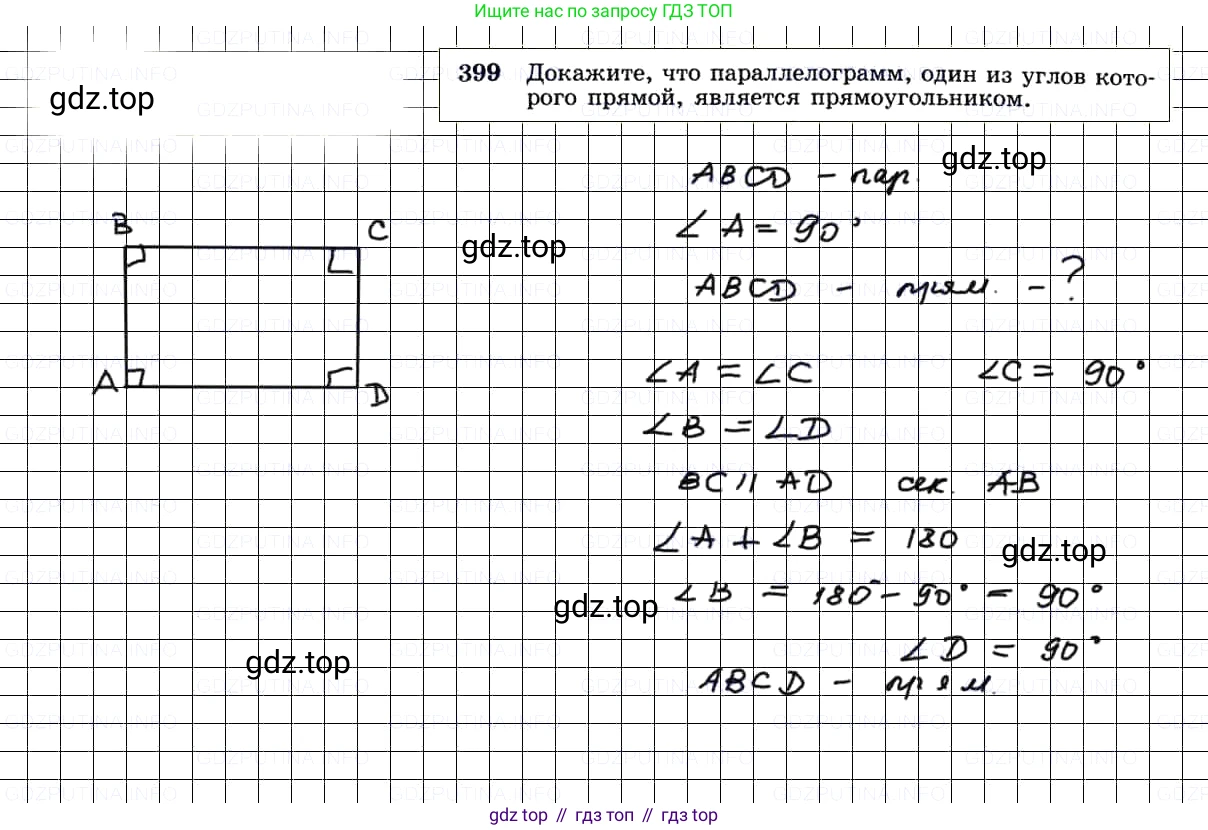 Ищите нас по запросу ГДЗ ТОП
399 Докажите, что параллелограмм, один из углов кото-
рого прямой, является прямоугольником.
gdz.top
gdz.top
ABCD - пар.
B
C
∠A = 90°
gdz.top
ABCD - прям. - ?
A
D
∠A = ∠C ∠C = 90°
∠B = ∠D
BC || AD сек. AB
∠A + ∠B = 180
gdz.top
∠B = 180° - 90° = 90°
gdz.top
∠D = 90°
gdz.top
ABCD - прям.
gdz top // гдз топ // гдз top